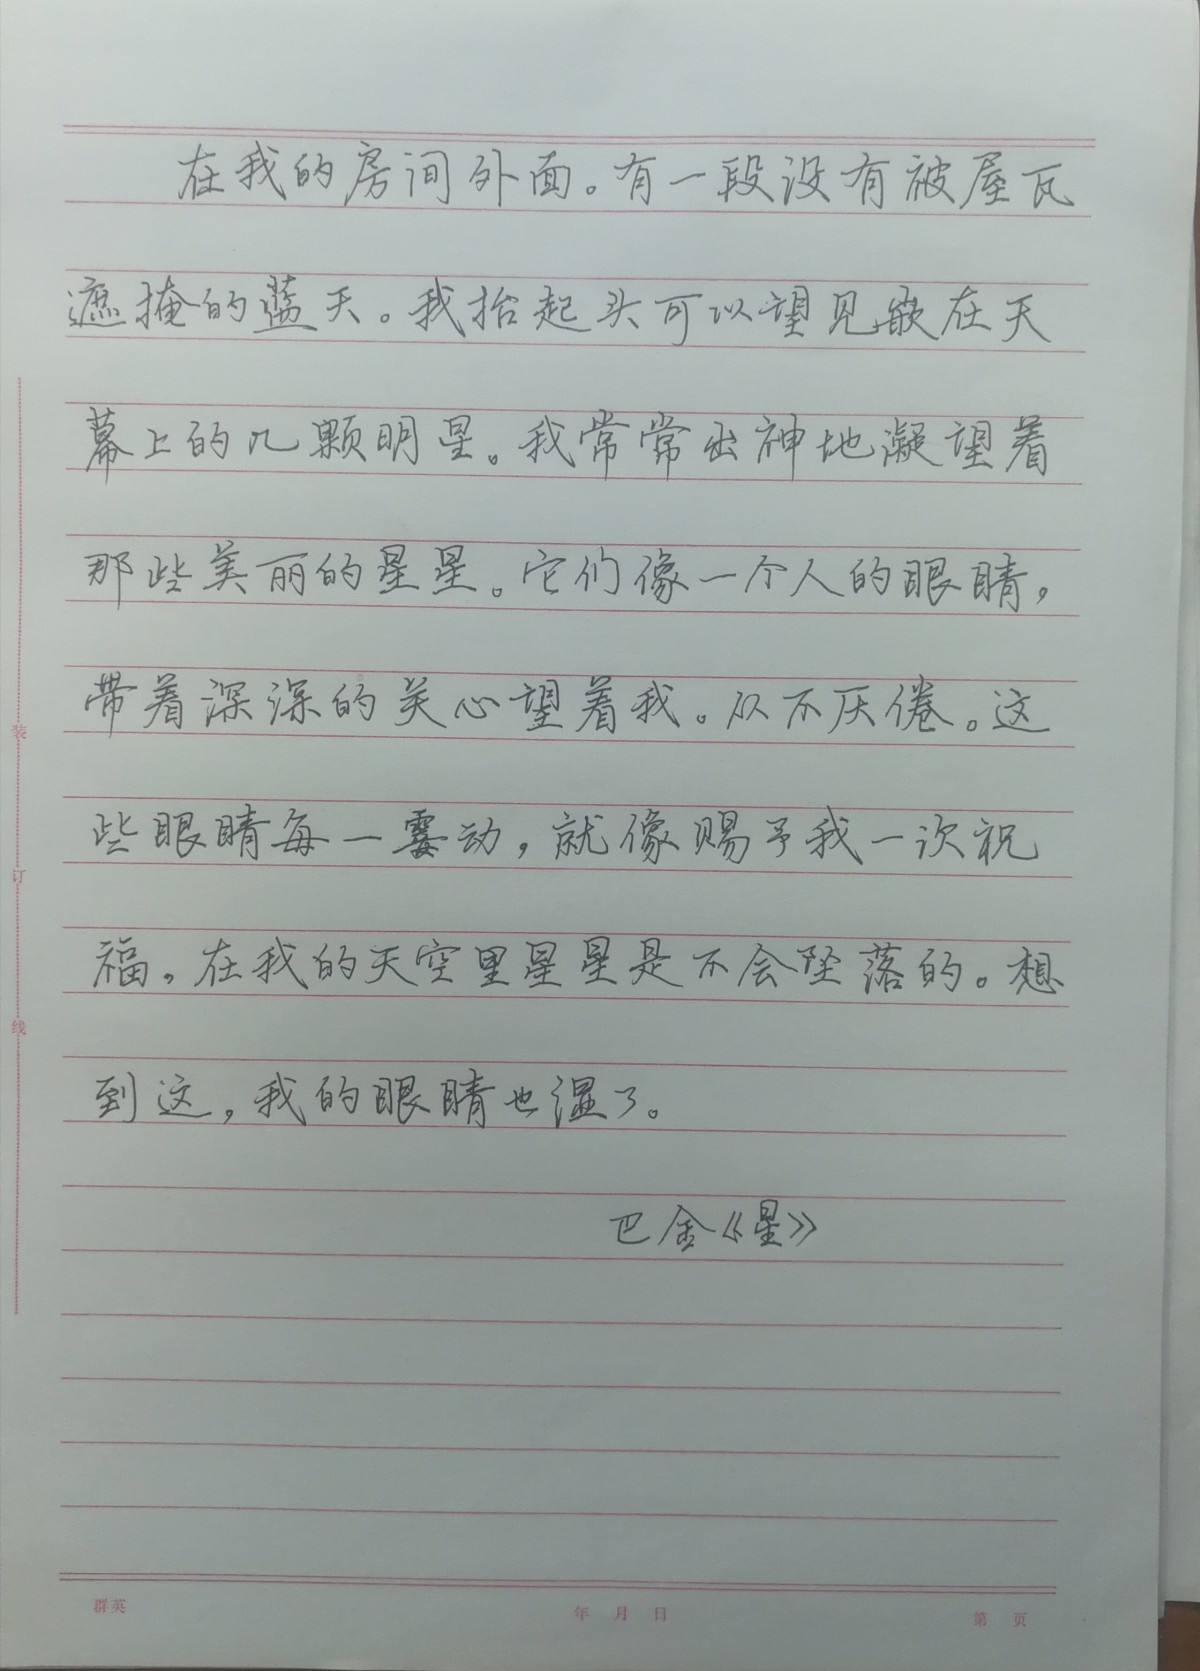 在我的房间外面。有一段没有被屋瓦
遮掩的蓝天。我抬起头可以望见嵌在天
幕上的几颗明星。我常常出神地凝望着
那些美丽的星星。它们像一个人的眼睛，
带着深深的关心望着我。从不厌倦。这
些眼睛每一霎动，就像赐予我一次祝
福。在我的天空里星星是不会坠落的。想
到这，我的眼睛也湿了。
巴金《星》
装
订
线
群英
年 月 日
第 页